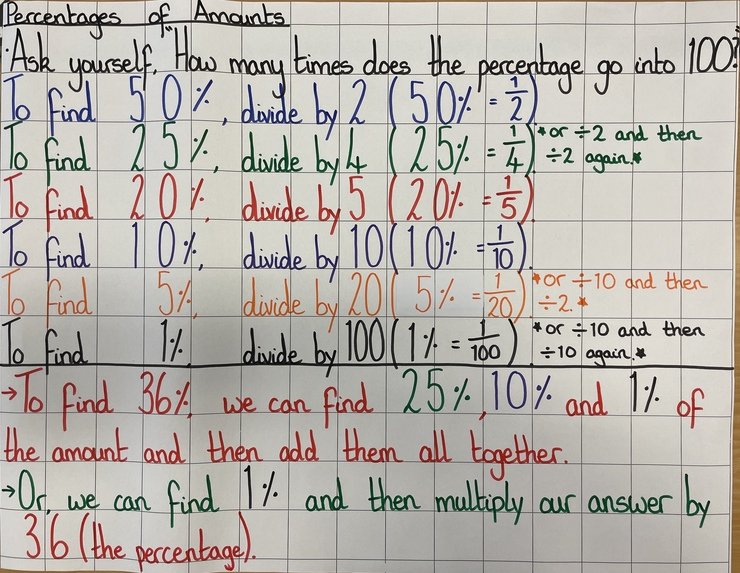 Percentages of Amounts
·Ask yourself, "How many times does the percentage go into 100?"
To find 50%, divide by 2 (50% = 1/2)
To find 25%, divide by 4 (25% = 1/4) *or ÷2 and then
÷2 again.*
To find 20%, divide by 5 (20% = 1/5)
To find 10%, divide by 10 (10% = 1/10)
To find 5%, divide by 20 (5% = 1/20) *or ÷10 and then
÷2.*
To find 1% divide by 100 (1% = 1/100) *or ÷10 and then
÷10 again.*
→To find 36%, we can find 25%, 10% and 1% of
the amount and then add them all together.
→Or, we can find 1% and then multiply our answer by
36 (the percentage).